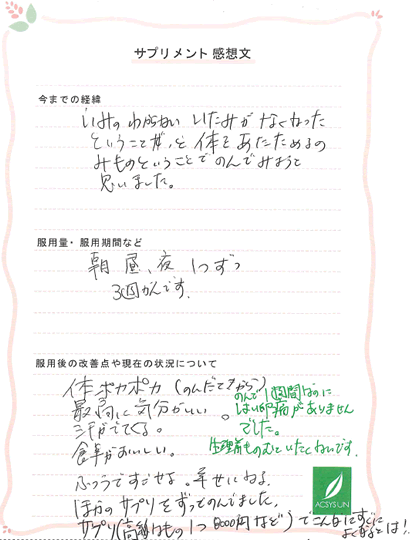 サプリメント 感想文
今までの経緯
いみのわからない いたみがなくなった
ということが、と体をあたためるの
みものということでのんでみようと
思いました。
服用量・服用期間など
朝 昼、夜 1つずつ
3週かんです。
服用後の改善点や現在の状況について
体ポカポカ(のんだてから)
最高に気分がいい。
汗がでてくる。
食事がおいしい。
のんで1週間なのに
はい卵病がありません
でした。
生理前ものむといたくないです。
ふつうですごせる。幸せいねる。
ほかのサプリをずっとのんでました。
サプリ(高額なもの1つ8000円など)でこんなにすぐに
よくなるとは!
ACSYSUN